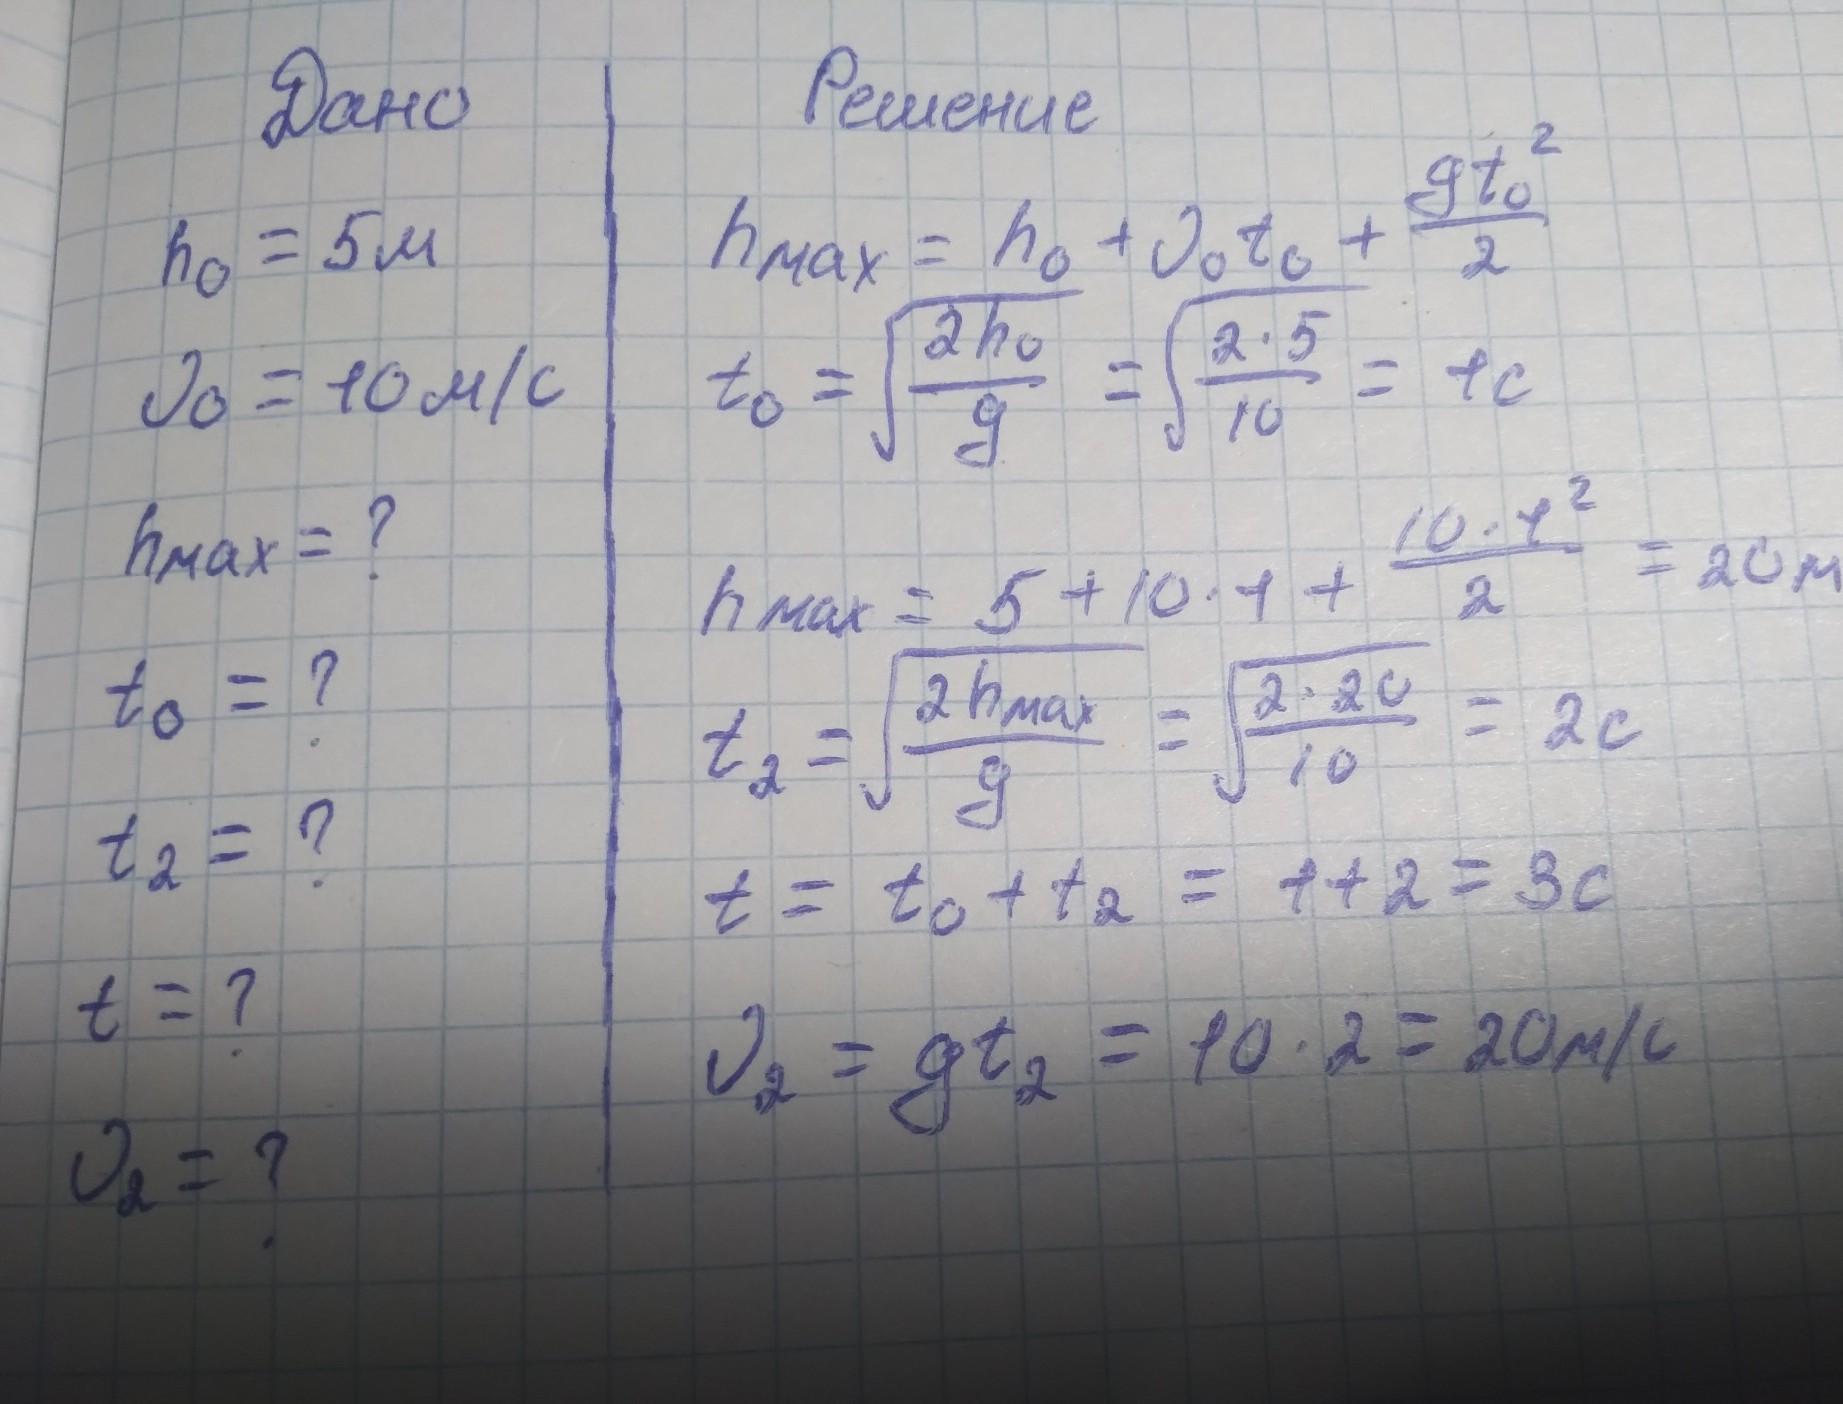 Дано
h₀ = 5м
υ₀ = 10м/с
hмах = ?
t₀ = ?
t₂ = ?
t = ?
υ₂ = ?
Решение
hмах = h₀ + υ₀t₀ + gt₀²/2
t₀ = √(2h₀/g) = √(2·5/10) = 1с
hмах = 5 + 10·1 + 10·1²/2 = 20м
t₂ = √(2hмах/g) = √(2·20/10) = 2с
t = t₀ + t₂ = 1+2 = 3с
υ₂ = gt₂ = 10·2 = 20м/с